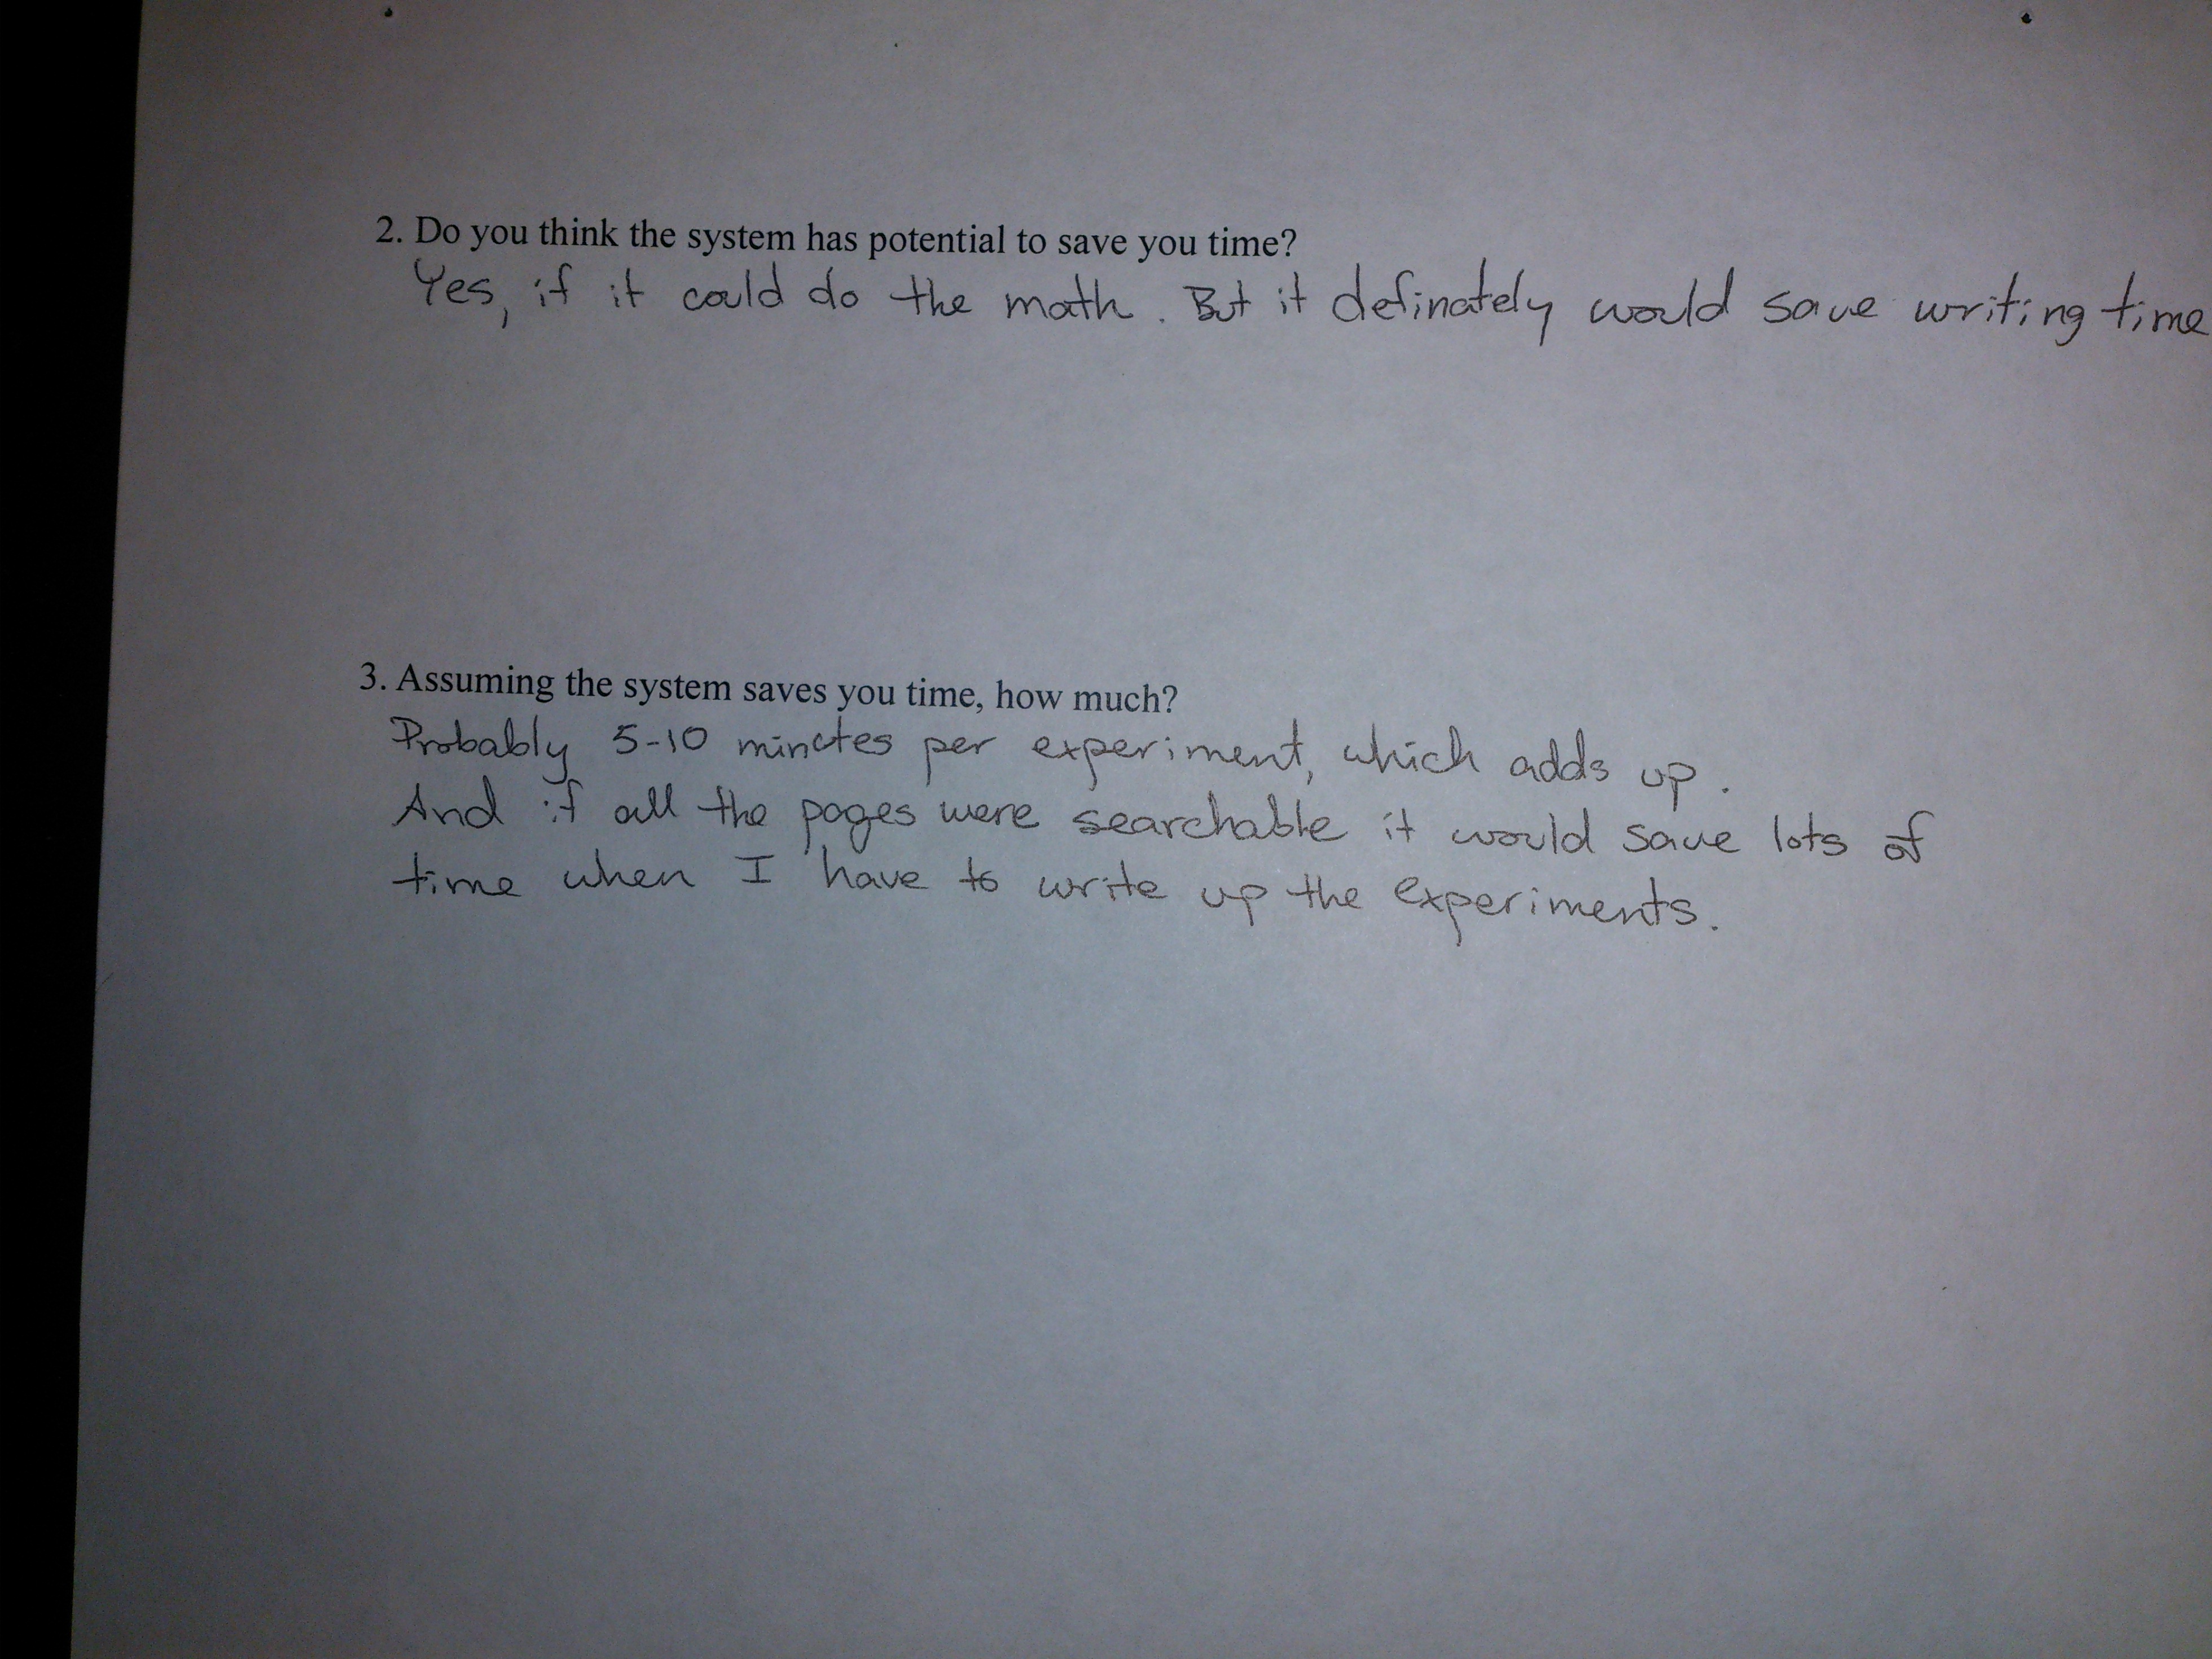 2. Do you think the system has potential to save you time?
Yes, if it could do the math. But it definately would save writing time
3. Assuming the system saves you time, how much?
Probably 5-10 minutes per experiment, which adds up.
And if all the pages were searchable it would save lots of
time when I have to write up the experiments.